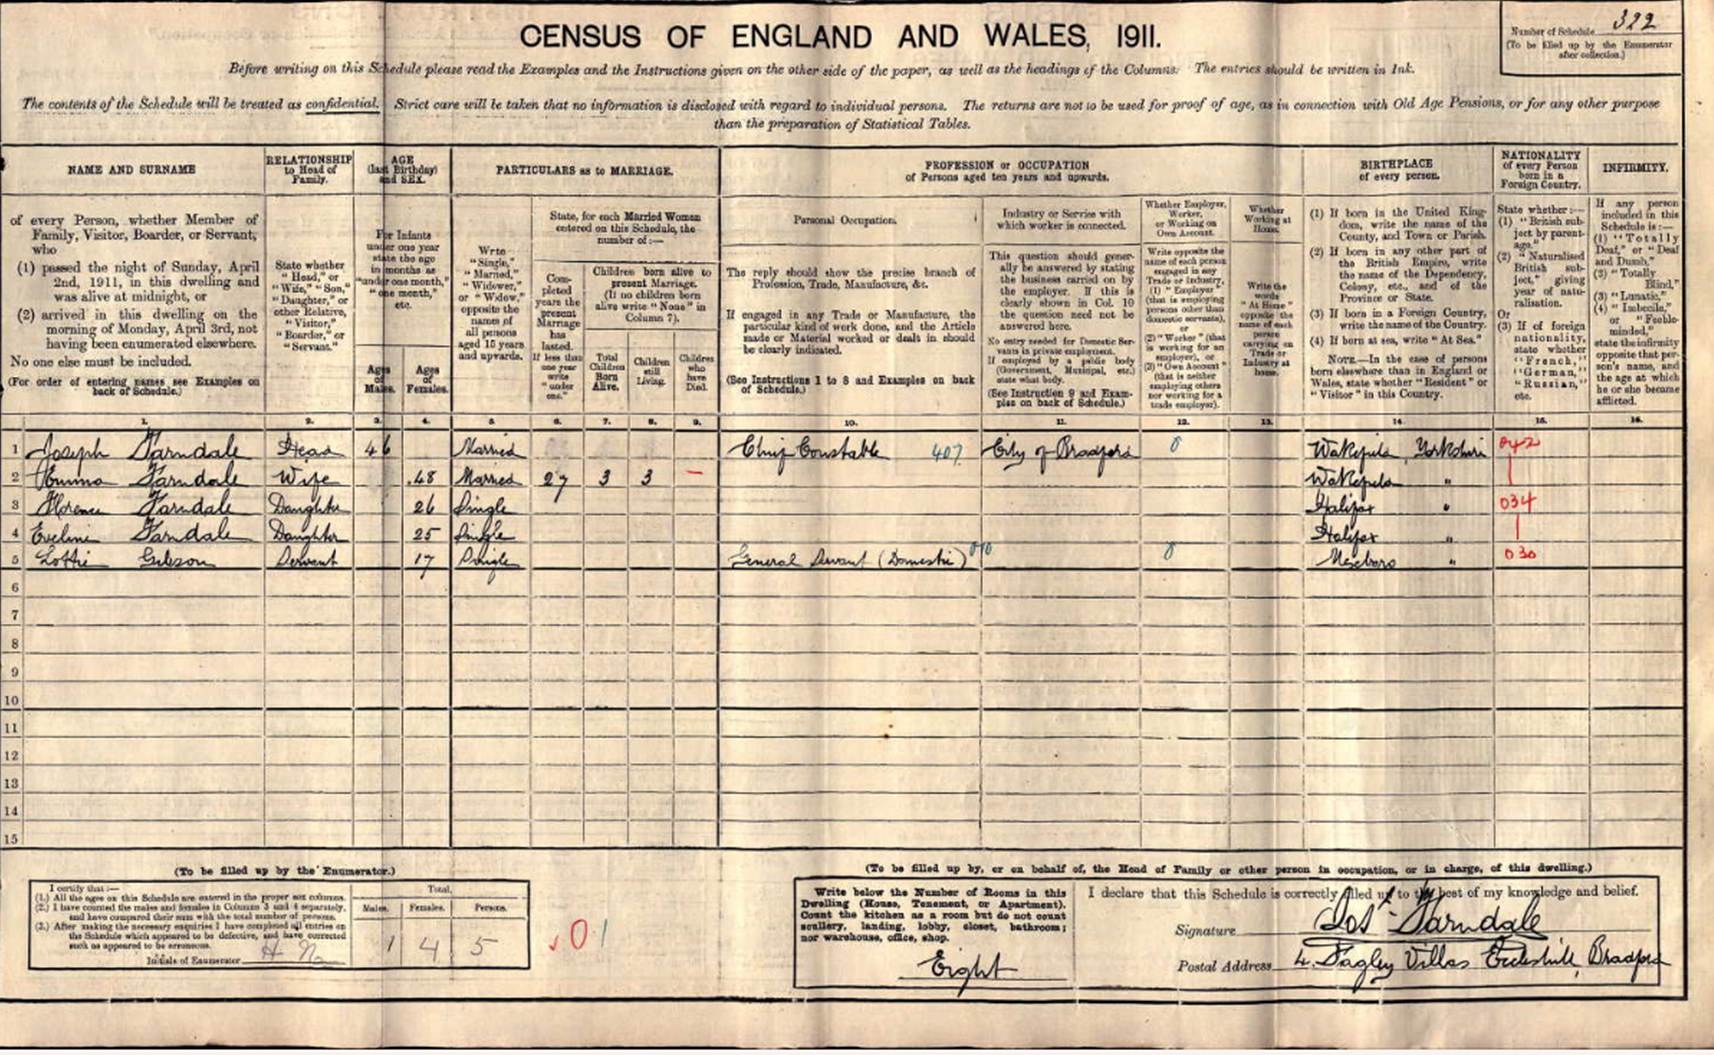 CENSUS OF ENGLAND AND WALES, 1911.
Number of Schedule 322
(To be filled up by the Enumerator
after collection.)
Before writing on this Schedule please read the Examples and the Instructions given on the other side of the paper, as well as the headings of the Columns. The entries should be written in Ink.
The contents of the Schedule will be treated as confidential. Strict care will be taken that no information is disclosed with regard to individual persons. The returns are not to be used for proof of age, as in connection with Old Age Pensions, or for any other purpose
than the preparation of Statistical Tables.
NAME AND SURNAME
of every Person, whether Member of
Family, Visitor, Boarder, or Servant,
who
(1) passed the night of Sunday, April
2nd, 1911, in this dwelling and
was alive at midnight, or
(2) arrived in this dwelling on the
morning of Monday, April 3rd, not
having been enumerated elsewhere.
No one else must be included.
(For order of entering names see Examples on
back of Schedule.)
RELATIONSHIP
to Head of
Family.
State whether
"Head," or
"Wife," "Son,"
"Daughter," or
other Relative,
"Visitor,"
"Boarder," or
"Servant."
AGE
(last Birthday)
and SEX.
For Infants
under one year
state the age
in months as
"under one month,"
"one month,"
etc.
Ages
of
Males.
Ages
of
Females.
PARTICULARS as to MARRIAGE.
Write
"Single,"
"Married,"
"Widower,"
or "Widow,"
opposite the
names of
all persons
aged 15 years
and upwards.
State, for each Married Woman
entered on this Schedule, the
number of:—
Completed
years the
present
Marriage
has
lasted.
If less than
one year
write
"under
one."
Children born alive to
present Marriage.
(If no children born
alive write "None" in
Column 7).
Total
Children
Born
Alive.
Children
still
Living.
Children
who
have
Died.
PROFESSION or OCCUPATION
of Persons aged ten years and upwards.
Personal Occupation.
The reply should show the precise branch of
Profession, Trade, Manufacture, &c.
If engaged in any Trade or Manufacture, the
particular kind of work done, and the Article
made or Material worked or dealt in should
be clearly indicated.
(See Instructions 1 to 8 and Examples on back
of Schedule.)
Industry or Service with
which worker is connected.
This question should gener-
ally be answered by stating
the business carried on by
the employer. If this is
clearly shown in Col. 10
the question need not be
answered here.
No entry needed for Domestic Ser-
vants in private employment.
If employed by a public body
(Government, Municipal, etc.)
state what body.
(See Instruction 9 and Exam-
ples on back of Schedule.)
Whether Employer,
Worker,
or Working on
Own Account.
Write opposite the
name of each person
engaged in any
Trade or Industry,
(1) "Employer"
(that is employing
persons other than
domestic servants),
or
(2) "Worker" (that
is working for an
employer), or
(3) "Own Account"
(that is neither
employing others
nor working for a
trade employer).
Whether
Working at
Home.
Write the
words
"At Home"
opposite the
name of each
person
carrying on
Trade or
Industry at
home.
BIRTHPLACE
of every person.
(1) If born in the United King-
dom, write the name of the
County, and Town or Parish.
(2) If born in any other part of
the British Empire, write
the name of the Dependency,
Colony, etc., and of the
Province or State.
(3) If born in a Foreign Country,
write the name of the Country.
(4) If born at sea, write "At Sea."
NOTE.—In the case of persons
born elsewhere than in England or
Wales, state whether "Resident" or
"Visitor" in this Country.
NATIONALITY
of every Person
born in a
Foreign Country.
State whether:—
(1) "British sub-
ject by parent-
age,"
(2) "Naturalised
British sub-
ject," giving
year of natu-
ralisation.
Or
(3) If of foreign
nationality,
state whether
"French,"
"German,"
"Russian,"
etc.
INFIRMITY.
If any person
included in this
Schedule is:—
(1) "Totally
Deaf," or "Deaf
and Dumb,"
(2) "Totally
Blind,"
(3) "Lunatic,"
(4) "Imbecile,"
or "Feeble-
minded,"
state the infirmity
opposite that per-
son's name, and
the age at which
he or she became
afflicted.
1. 2. 3. 4. 5. 6. 7. 8. 9. 10. 11. 12. 13. 14. 15. 16.
1 Joseph Farndale Head 46 Married Chief Constable 407 City of Bradford 0 Wakefield, Yorkshire 042
2 Emma Farndale Wife 48 Married 27 3 3 — Wakefield "
3 Florence Farndale Daughter 26 Single Halifax " 034
4 Eveline Farndale Daughter 25 Single Halifax "
5 Lottie Gibson Servant 17 Single General Servant (Domestic) 0 Mexboro " 030
6
7
8
9
10
11
12
13
14
15
(To be filled up by the Enumerator.)
I certify that:—
(1.) All the ages on this Schedule are entered in the proper sex columns.
(2.) I have counted the males and females in Columns 3 and 4 separately,
and have compared their sum with the total number of persons.
(3.) After making the necessary enquiries I have completed all entries on
the Schedule which appeared to be defective, and have corrected
such as appeared to be erroneous.
Initials of Enumerator
Total.
Males. Females. Persons.
1 4 5
(To be filled up by, or on behalf of, the Head of Family or other person in occupation, or in charge, of this dwelling.)
Write below the Number of Rooms in this
Dwelling (House, Tenement, or Apartment).
Count the kitchen as a room but do not count
scullery, landing, lobby, closet, bathroom;
nor warehouse, office, shop.
Eight
I declare that this Schedule is correctly filled up to the best of my knowledge and belief.
Signature Jos. Farndale
Postal Address 4. Fagley Villas Eccleshill, Bradford